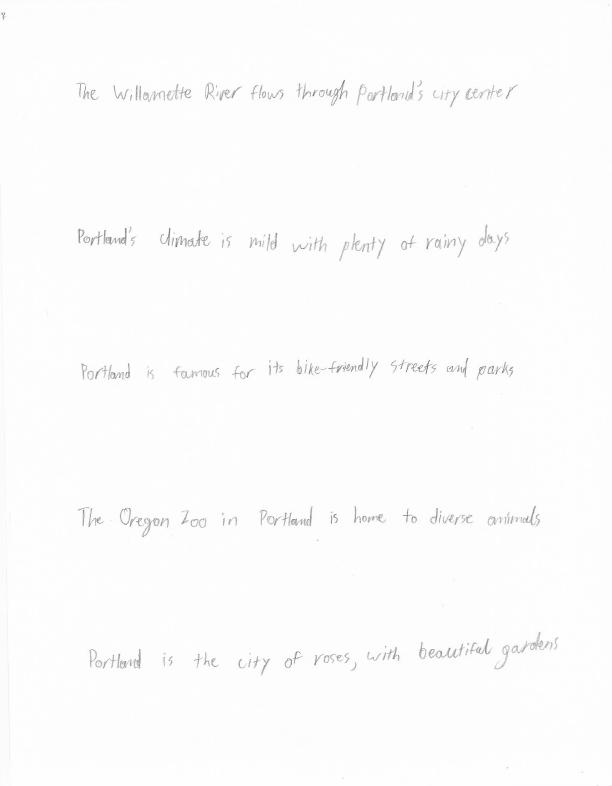 The Willamette River flows through Portland's city center
Portland's climate is mild with plenty of rainy days
Portland is famous for its bike-friendly streets and parks
The Oregon Zoo in Portland is home to diverse animals
Portland is the city of roses, with beautiful gardens